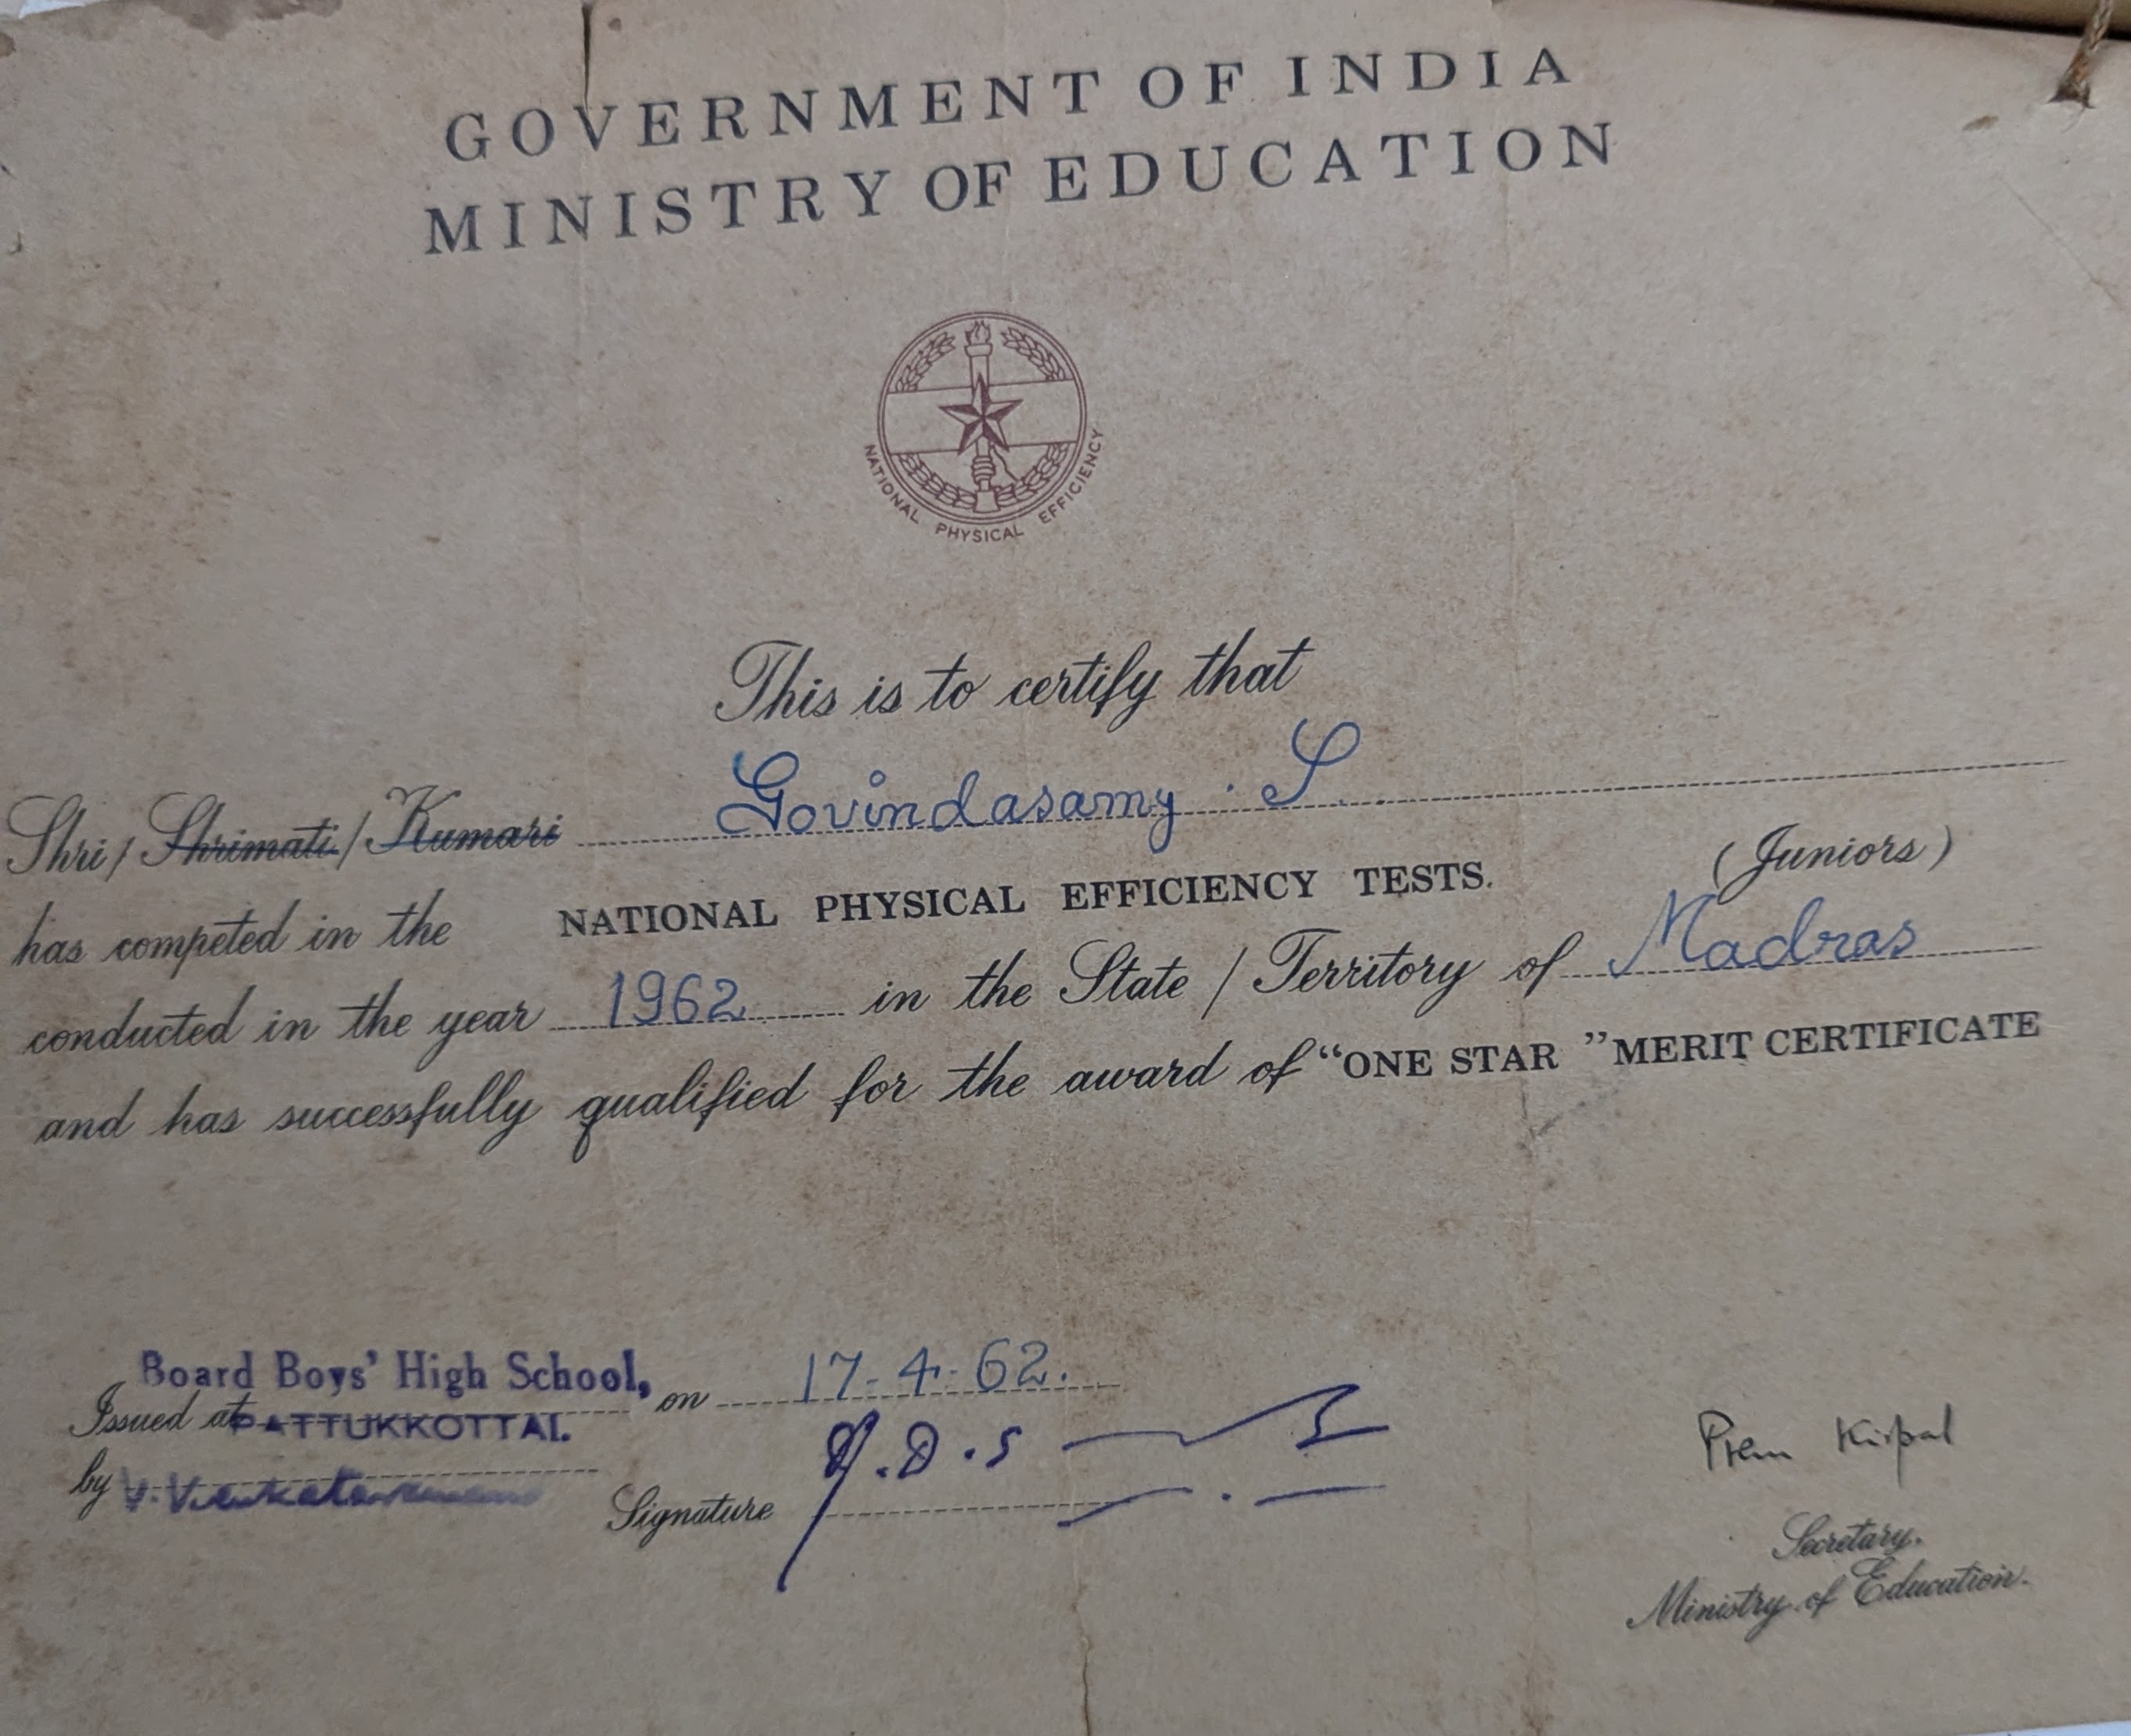 GOVERNMENT OF INDIA
MINISTRY OF EDUCATION
NATIONAL PHYSICAL EFFICIENCY
This is to certify that
Shri / Shrimati / Kumari Govindasamy . S.
(Juniors)
has competed in the NATIONAL PHYSICAL EFFICIENCY TESTS.
conducted in the year 1962 in the State / Territory of Madras
and has successfully qualified for the award of "ONE STAR " MERIT CERTIFICATE
Board Boys' High School,
Issued at PATTUKKOTTAI. on 17-4-62.
by V.
Signature
Prem Kirpal
Secretary.
Ministry of Education.